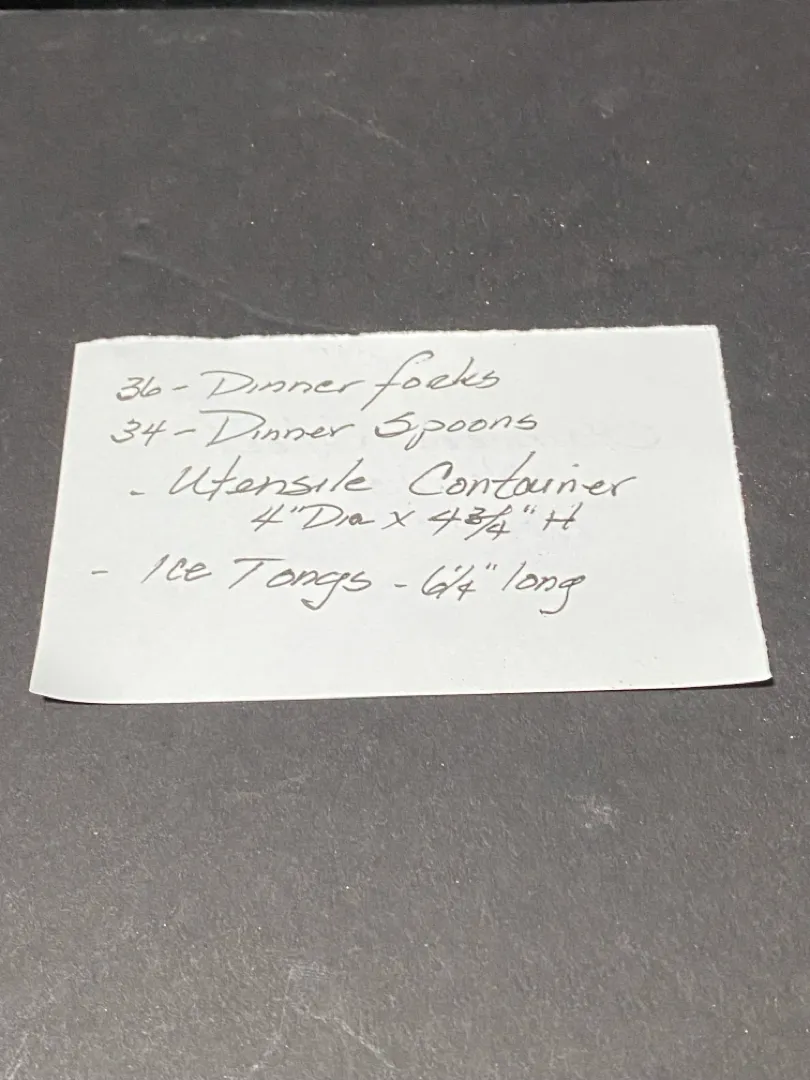 36 - Dinner forks
34 - Dinner Spoons
- Utensile Container
4" Dia x 4 3/4" H
- Ice Tongs - 6 1/4" long